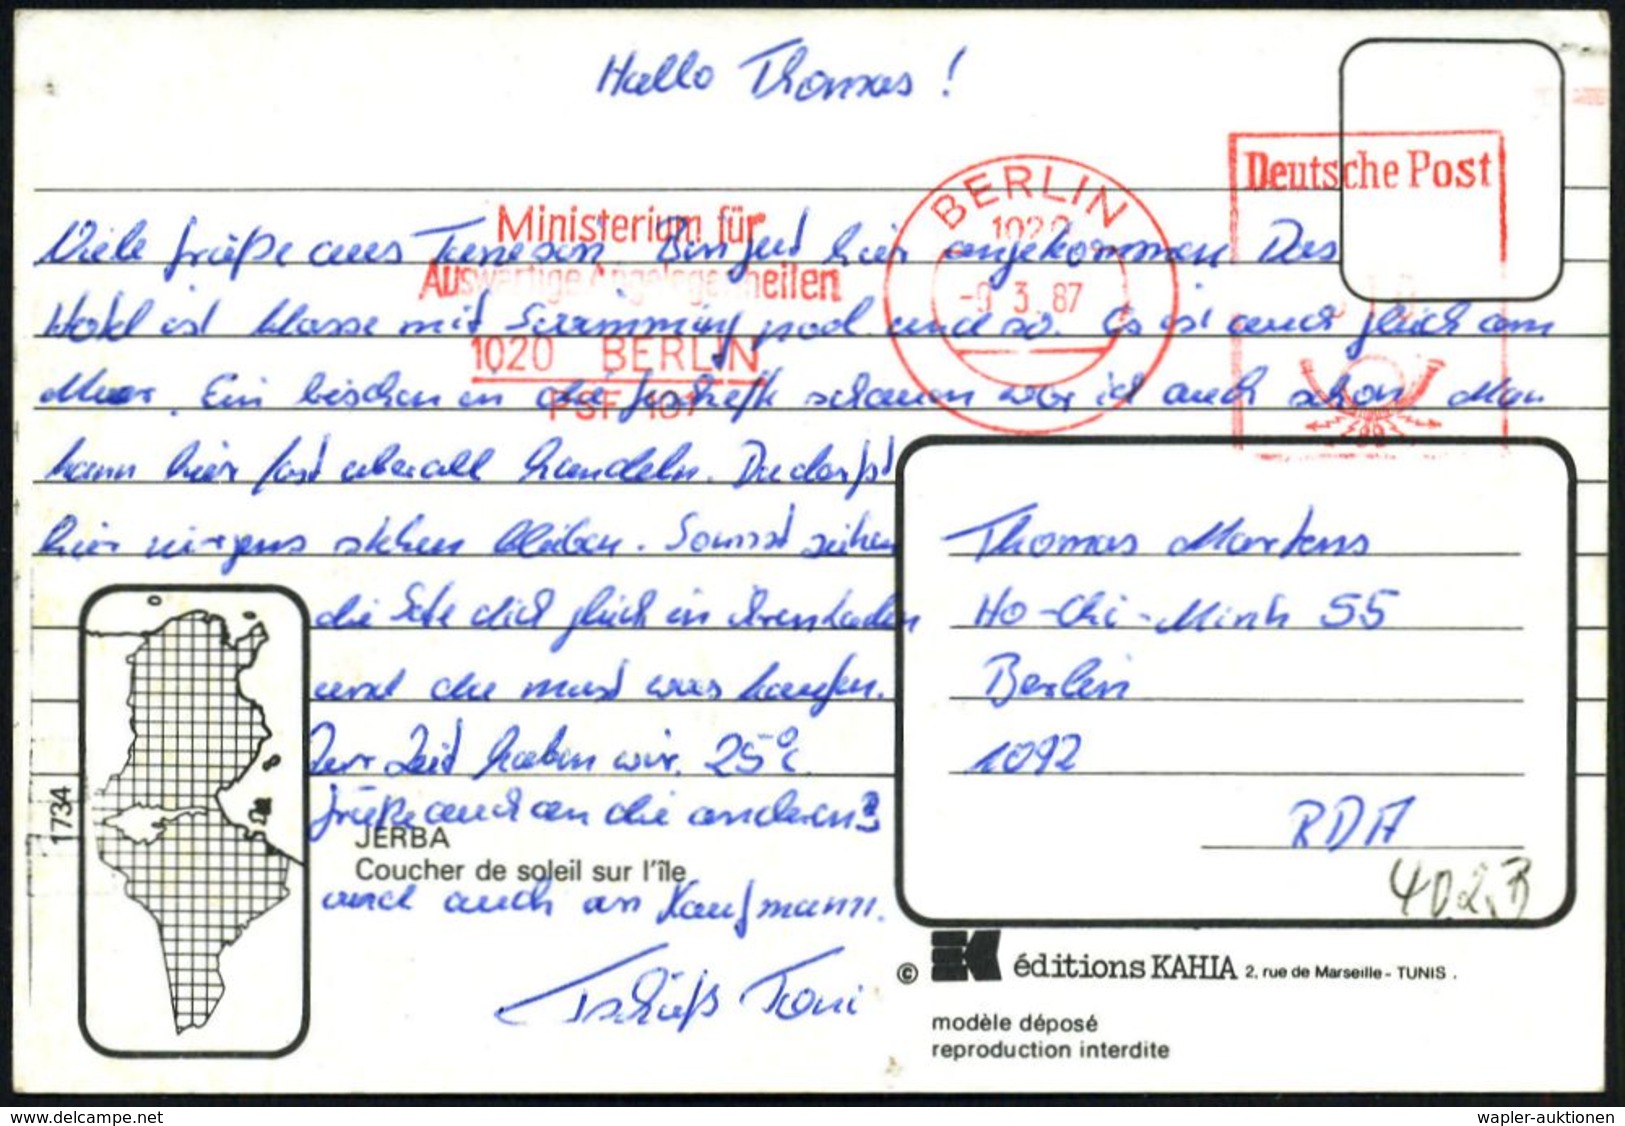 Hallo Thomas!
Deutsche Post
BERLIN
1020
-9. 3. 87
Ministerium für
Auswärtige Angelegenheiten
1020 BERLIN
PSF 107
Viele Grüße aus Tunesien. Bin gut hier angekommen Das
Hotel ist klasse mit Swimming pool und so. Es ist auch gleich am
Meer. Ein bischen in die Geschäfte schauen war ich auch schon. Man
kann hier fast überall handeln. Du darfst
hier nirgens stehen bleiben. Sonnst ziehen
die Leute dich gleich in ihren Laden
und du must was kaufen.
Zur Zeit haben wir 25°C.
Grüße auch an die anderen
und auch an Kaufmann.
Tschüß Toni
Thomas Martens
Ho-Chi-Minh 55
Berlin
1092
RDA
402.B
1734
JERBA
Coucher de soleil sur l'île
© EK éditions KAHIA 2, rue de Marseille - TUNIS .
modèle déposé
reproduction interdite
www.delcampe.net
wapler-auktionen